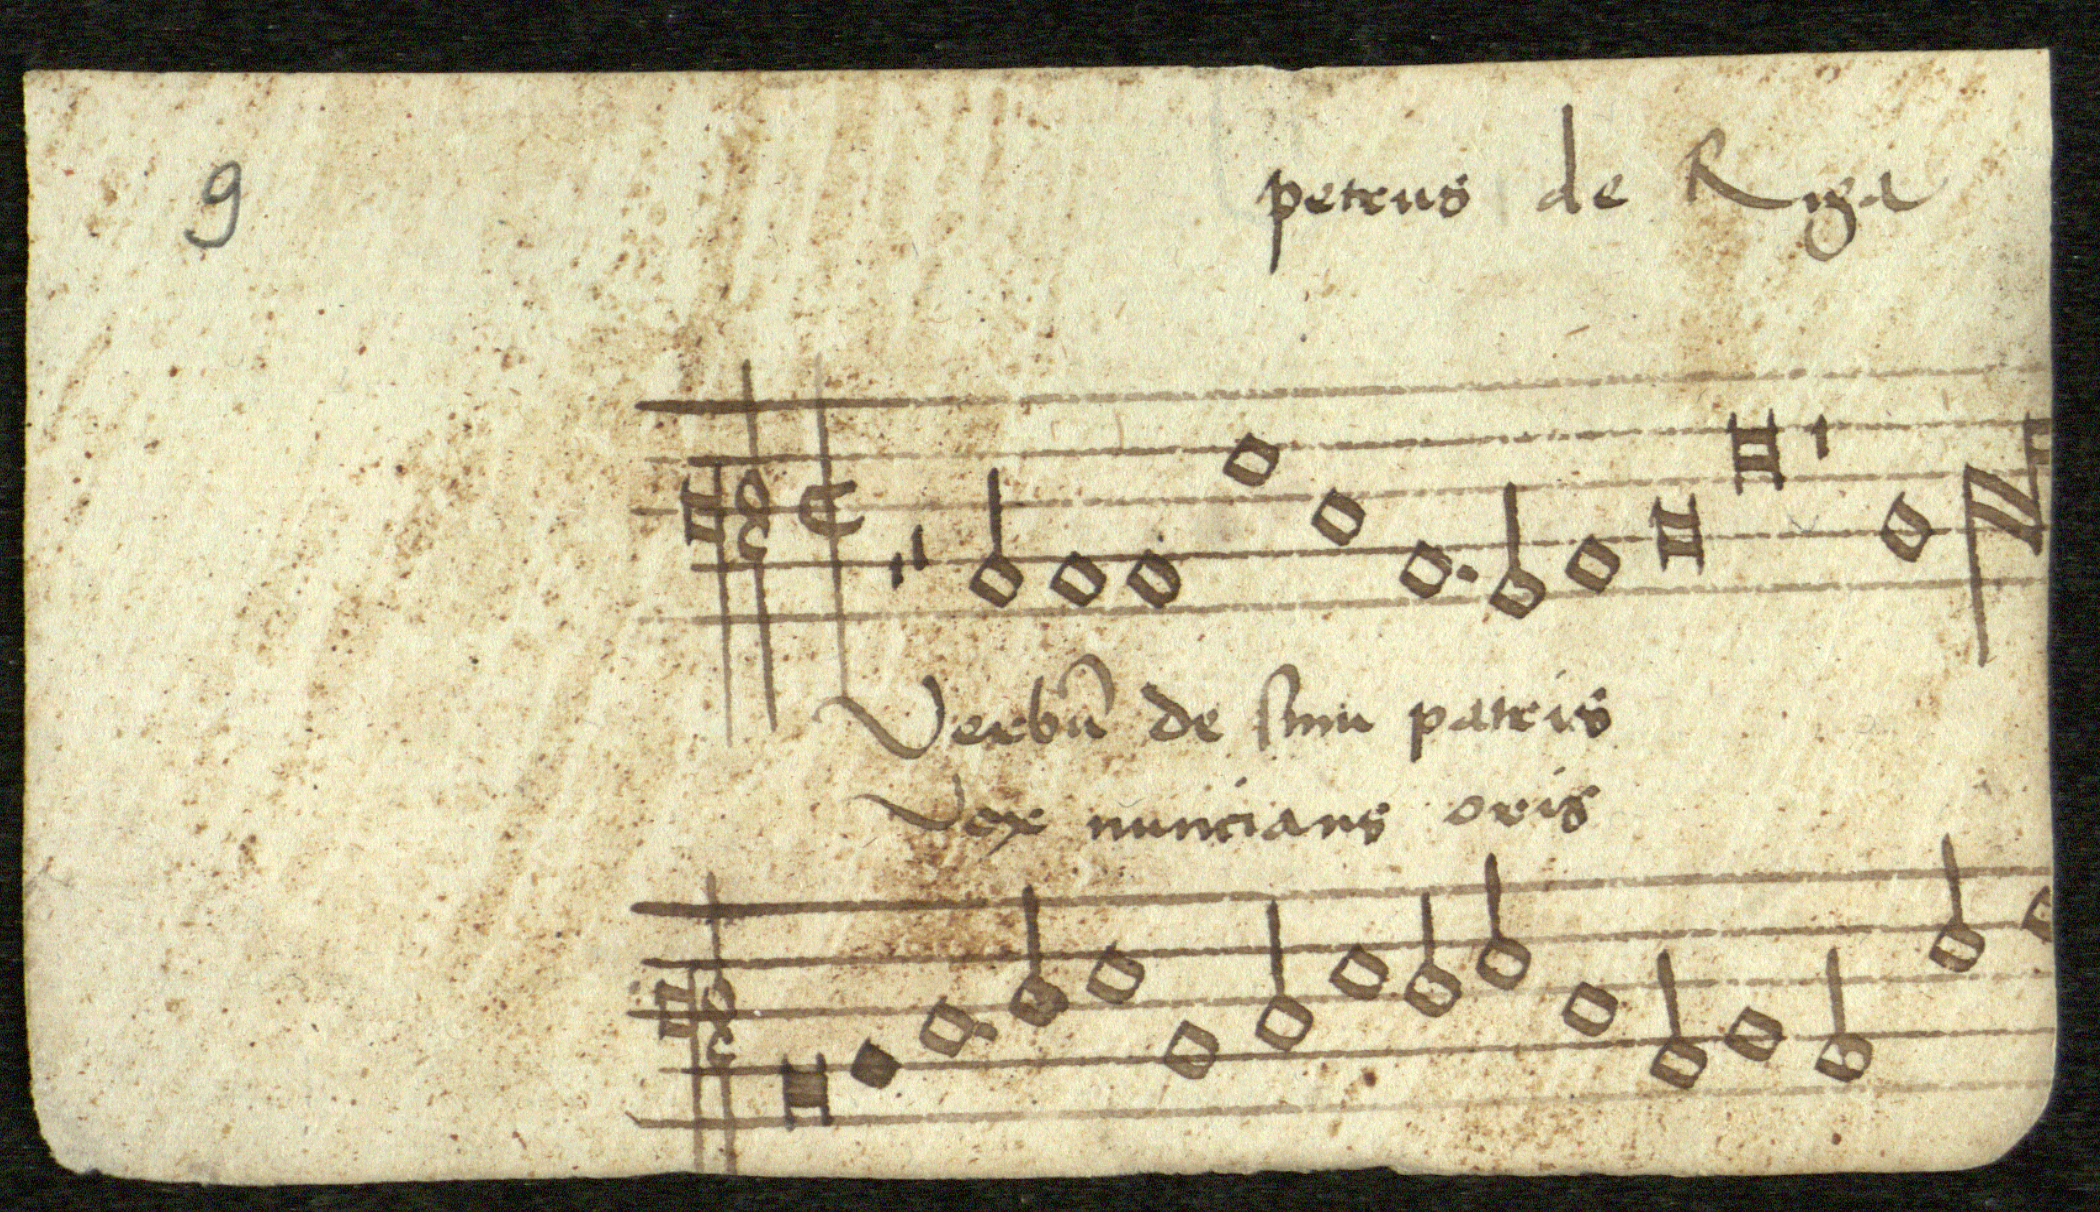 9
petrus de Riga
Verbū de sinu patris
Vox nuncians oris